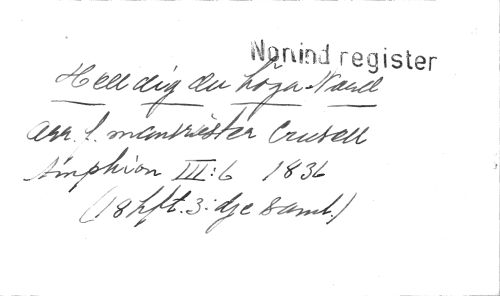 Nonind register
Hell dig du höga Nord
arr. f. manskvartett Crusell
Amphion III:6 1836
(18 hft. 3:dje saml.)